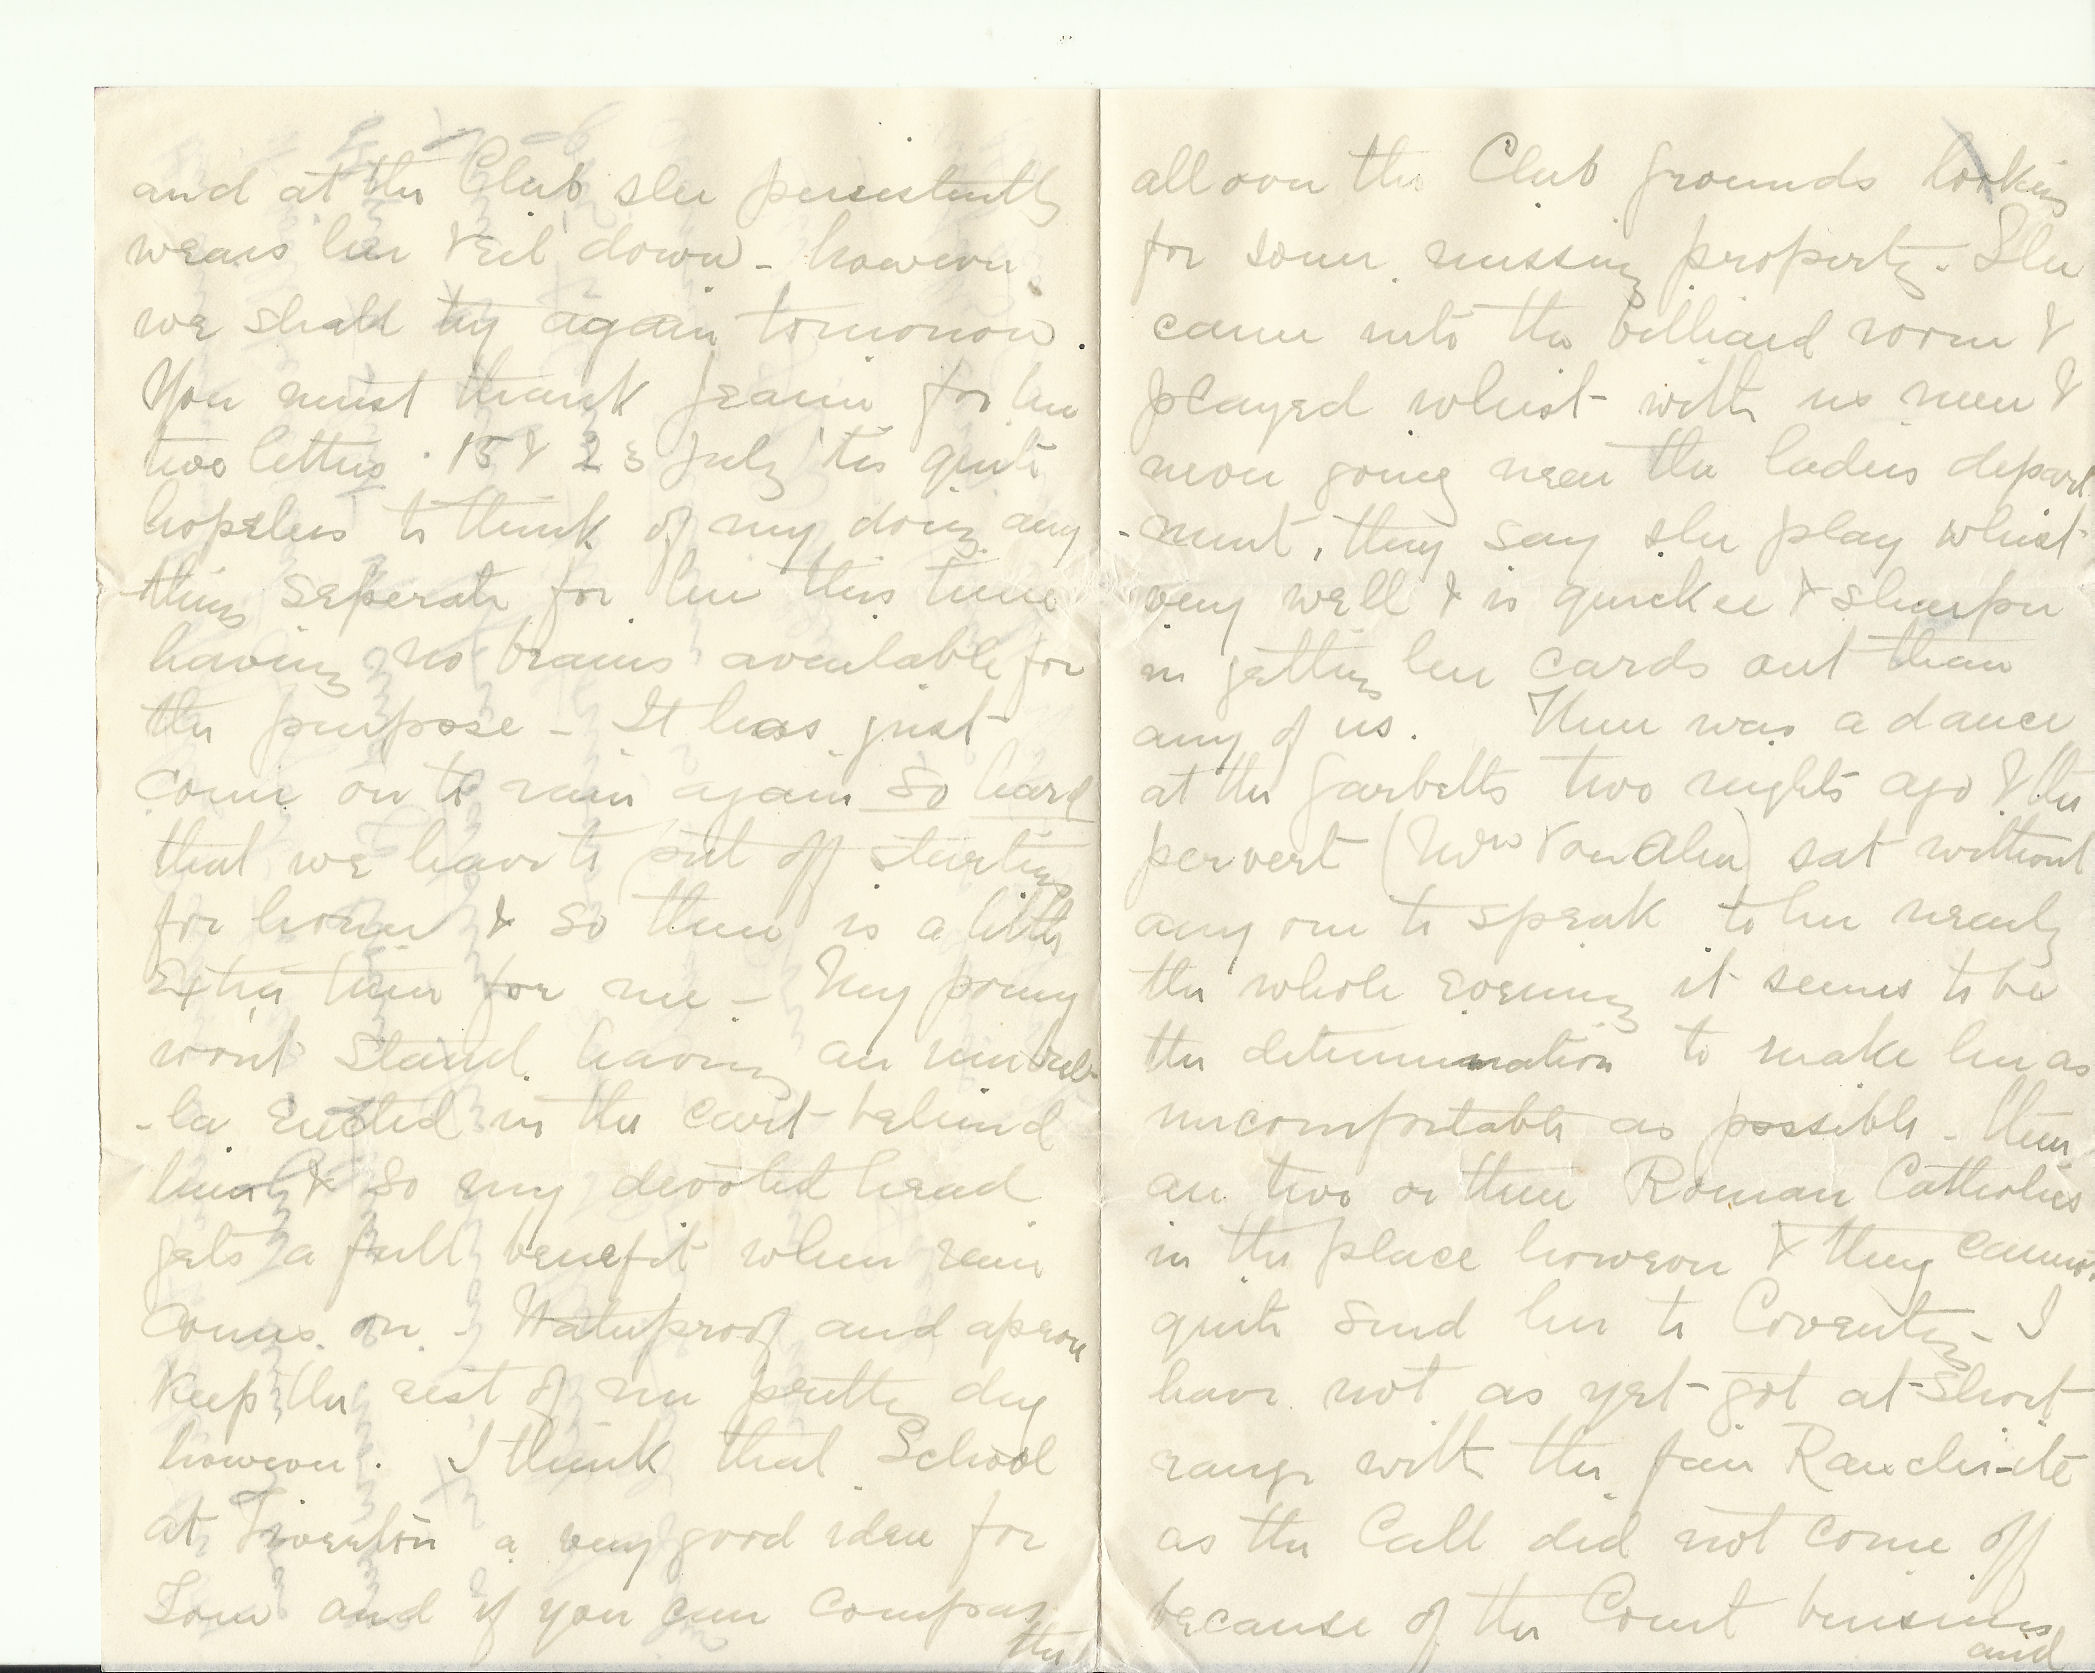 and at the Club she persistently
wears her veil down - however
we shall try again tomorrow.
You must thank Jeanie for her
two letters. 15 & 23 July 'tis quite
hopeless to think of my doing any
thing seperate for her this time
having no brains available for
the purpose - It has just
come on to rain again so hard
that we have to put off starting
for home & so there is a little
extra time for me - My pony
wont stand having an umbrel-
-la erected in the cart behind
him & so my devoted head
gets a full benefit when rain
comes on - Waterproof and apron
keep the rest of me pretty dry
however. I think that School
at Tiverton a very good idea for
Tom and if you can compass
the
all over the Club grounds looking
for some missing property. She
came into the billiard room &
played whist with us men &
never going near the ladies depart
-ment, they say she play whist
very well & is quicker & sharper
in getting her cards out than
any of us. There was a dance
at the Garbetts two nights ago & the
pervert (Mrs Van Ahn) sat without
any one to speak to her nearly
the whole evening it seems to be
the determination to make her as
uncomfortable as possible - there
are two or three Roman Catholics
in the place however & they cannot
quite send her to Coventry - I
have not as yet got at short
range with the fair Ranchi-ite
as the Call did not come off
because of the Court business
and